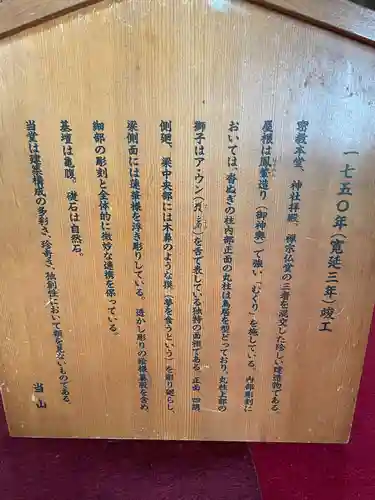 一七五〇年（寛延三年）竣工
密教本堂、神社拝殿、禅宗仏堂の三者を混交した珍しい建造物である。
屋根は鳳輦造り（御神輿）で強い「むくり」を施している。内部彫刻に
おいては、沓ぬぎの柱内部正面の丸柱は鳥居を型どっており、丸柱上部の
獅子はア・ウンを舌で表している独特の面相である。正面、四隅
側廻、梁中央部には木鼻のような獏（夢を食うという）を彫り廻らし、
梁側面には蓮華様を浮き彫りしている。透かし彫りの絵様蟇股を含め、
細部の彫刻と全体的に微妙な連携を保っている。
基壇は亀腹。礎石は自然石。
当堂は建築構成の多彩さ、珍奇さ、独創性において類を見ないものである。
当山